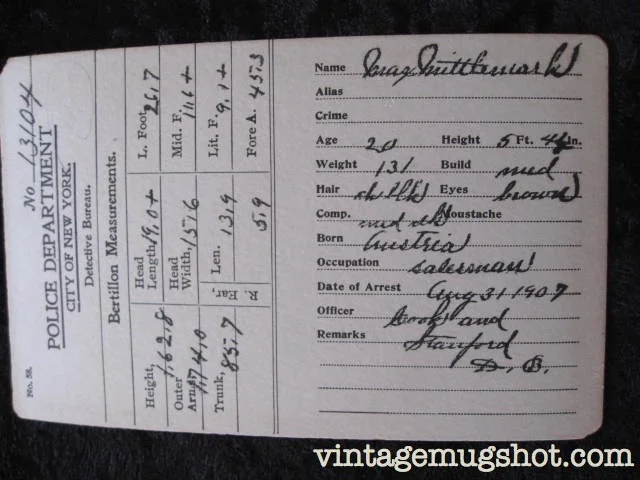 No 13104
POLICE DEPARTMENT
CITY OF NEW YORK.
Detective Bureau.
Bertillon Measurements.
Height, 1,62.8
Outer Arms, 1,74.0
Trunk, 85.7
Head Length, 19.0+
Head Width, 15.16
R. Ear, Len. 13.9
5.9
L. Foot, 26.7
Mid. F. 11.6+
Lit. F. 9.1+
Fore A. 45.3
No. 58.
Name Max Mittlemark
Alias
Crime
Age 20 Height 5 Ft. 4½ in.
Weight 131 Build med
Hair Eyes brown
Comp. med dk Moustache
Born Austria
Occupation Salesman
Date of Arrest Aug 31 1907
Officer Cook and
Remarks Stanford
D. B.
vintagemugshot.com